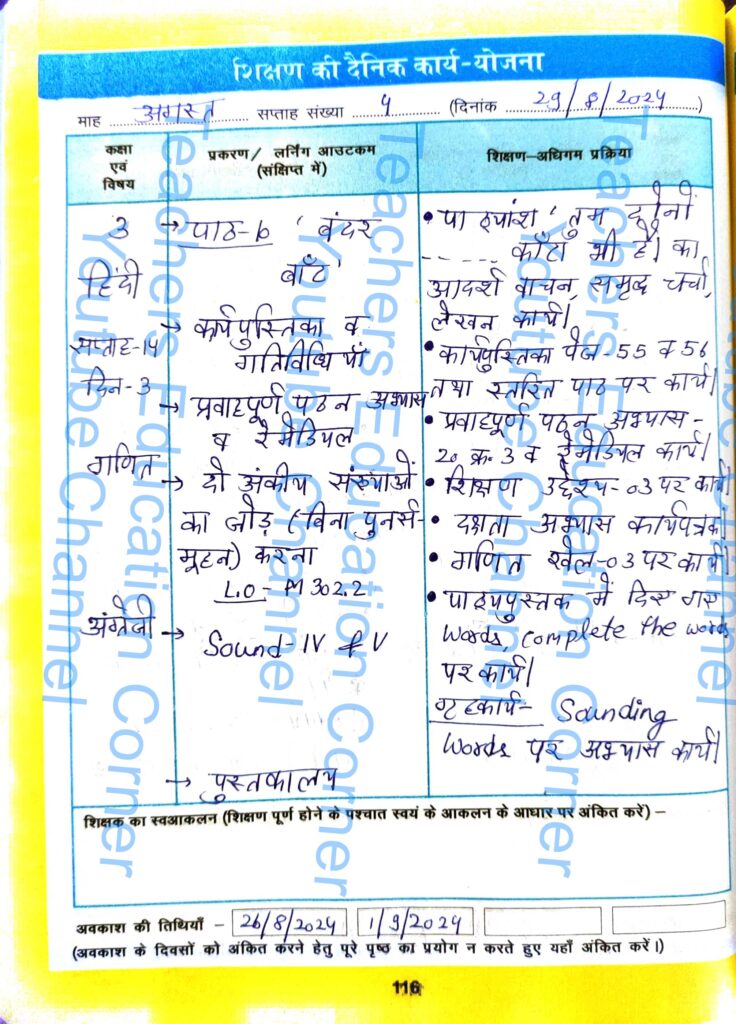 शिक्षण की दैनिक कार्य-योजना
माह अगस्त सप्ताह संख्या 4 (दिनांक 29/8/2024)
कक्षा एवं विषय
प्रकरण/ लर्निंग आउटकम (संक्षिप्त में)
शिक्षण-अधिगम प्रक्रिया
3
हिंदी
सप्ताह-14
दिन-3
→ पाठ-6 'बंदर
बाँट'
→ कार्यपुस्तिका व
गतिविधियाँ
→ प्रवाहपूर्ण पठन अभ्यास
व रेमेडियल
• पाठ्यांश 'तुम दोनों
----- काँटा भी है। का
आदर्श वाचन, समृद्ध चर्चा,
लेखन कार्य।
• कार्यपुस्तिका पेज-55 व 56
तथा स्तरित पाठ पर कार्य।
• प्रवाहपूर्ण पठन अभ्यास-
20 क्र. 3 व रेमेडियल कार्य।
गणित
→ दो अंकीय संख्याओं
का जोड़ (बिना पुनर्स-
मूहन) करना
L.O - M 302.2
• शिक्षण उद्देश्य-03 पर कार्य
• दक्षता अभ्यास कार्यपत्रक
• गणित खेल-03 पर कार्य।
अंग्रेजी
→ Sound-IV & V
• पाठ्यपुस्तक में दिए गए
words, complete the words
पर कार्य।
गृहकार्य- Sounding
words पर अभ्यास कार्य।
→ पुस्तकालय
शिक्षक का स्वआकलन (शिक्षण पूर्ण होने के पश्चात स्वयं के आकलन के आधार पर अंकित करें) –
अवकाश की तिथियाँ - 26/8/2024 1/9/2024
(अवकाश के दिवसों को अंकित करने हेतु पूरे पृष्ठ का प्रयोग न करते हुए यहाँ अंकित करें।)
116
Teachers Education Corner
Youtube Channel
Teachers Education Corner
Youtube Channel
Teachers Education Corner
Youtube Channel